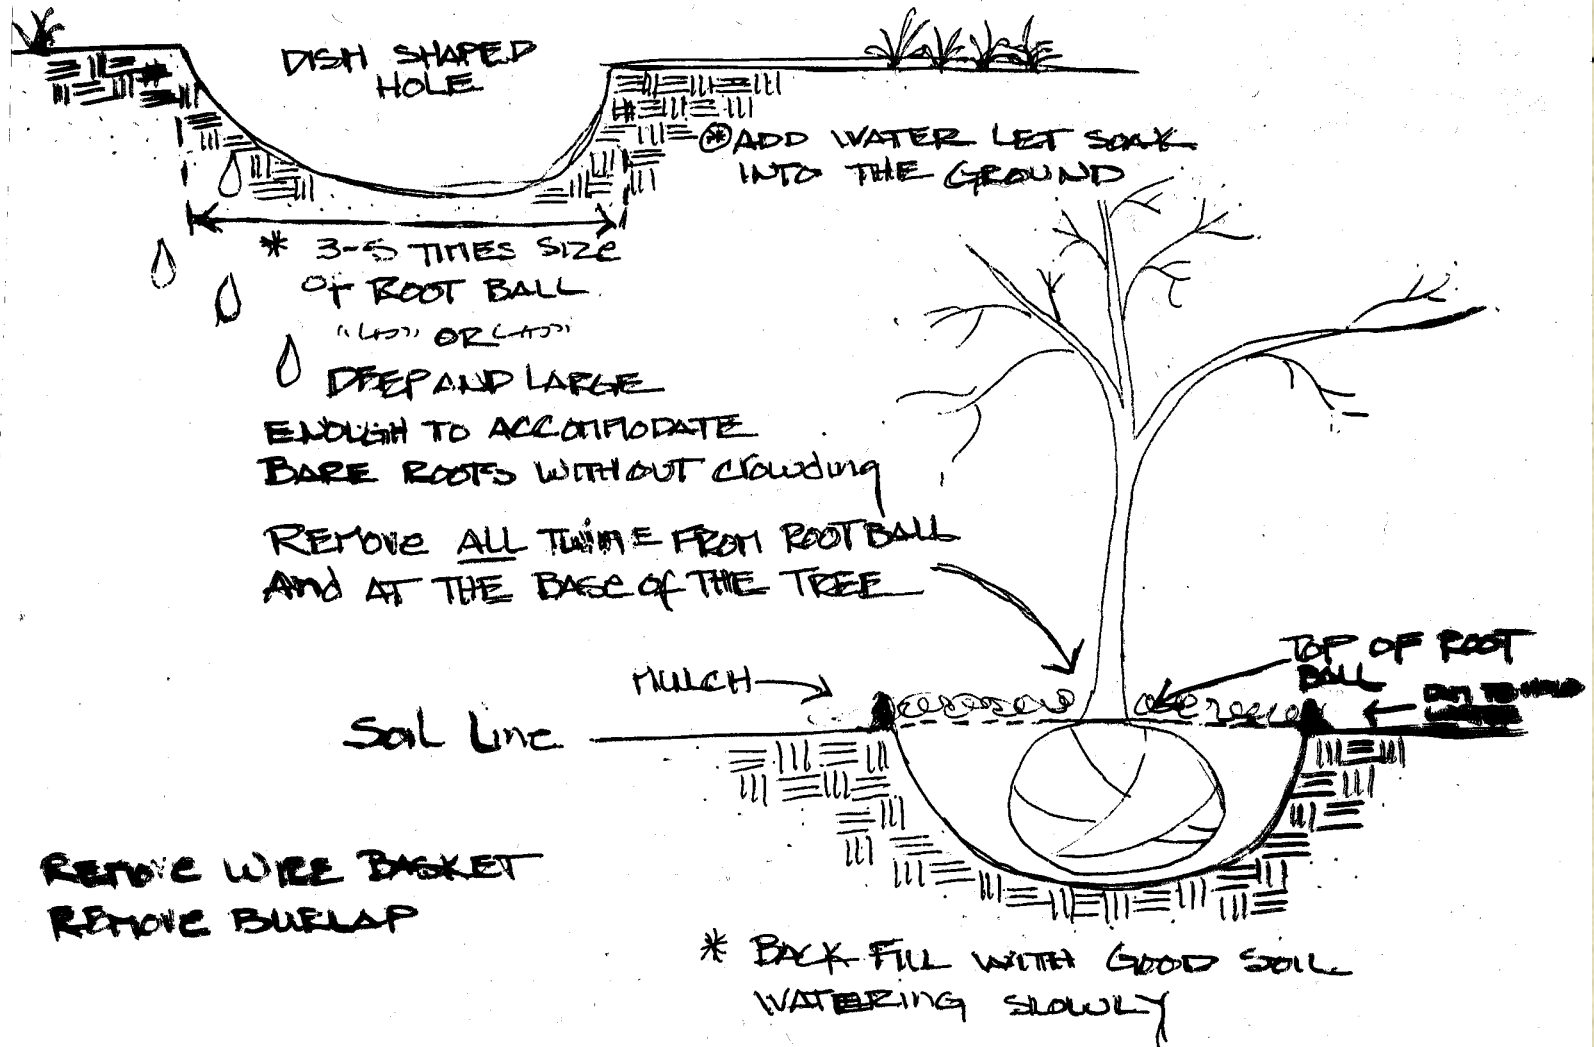 DISH SHAPED
HOLE
* ADD WATER LET SOAK
INTO THE GROUND
* 3-5 TIMES SIZE
Of ROOT BALL
OR
DEEP AND LARGE
ENOUGH TO ACCOMMODATE
BARE ROOTS WITHOUT crowding
REMOve ALL TwinE FROM ROOTBALL
And AT THE BASe of THE TREE
TOP OF ROOT
BALL
MULCH
Soil Line
REMOve WIRE BASKET
REMOve BURLAP
* BACK FILL WITH GOOD SOIL
WATERING SLOWLY